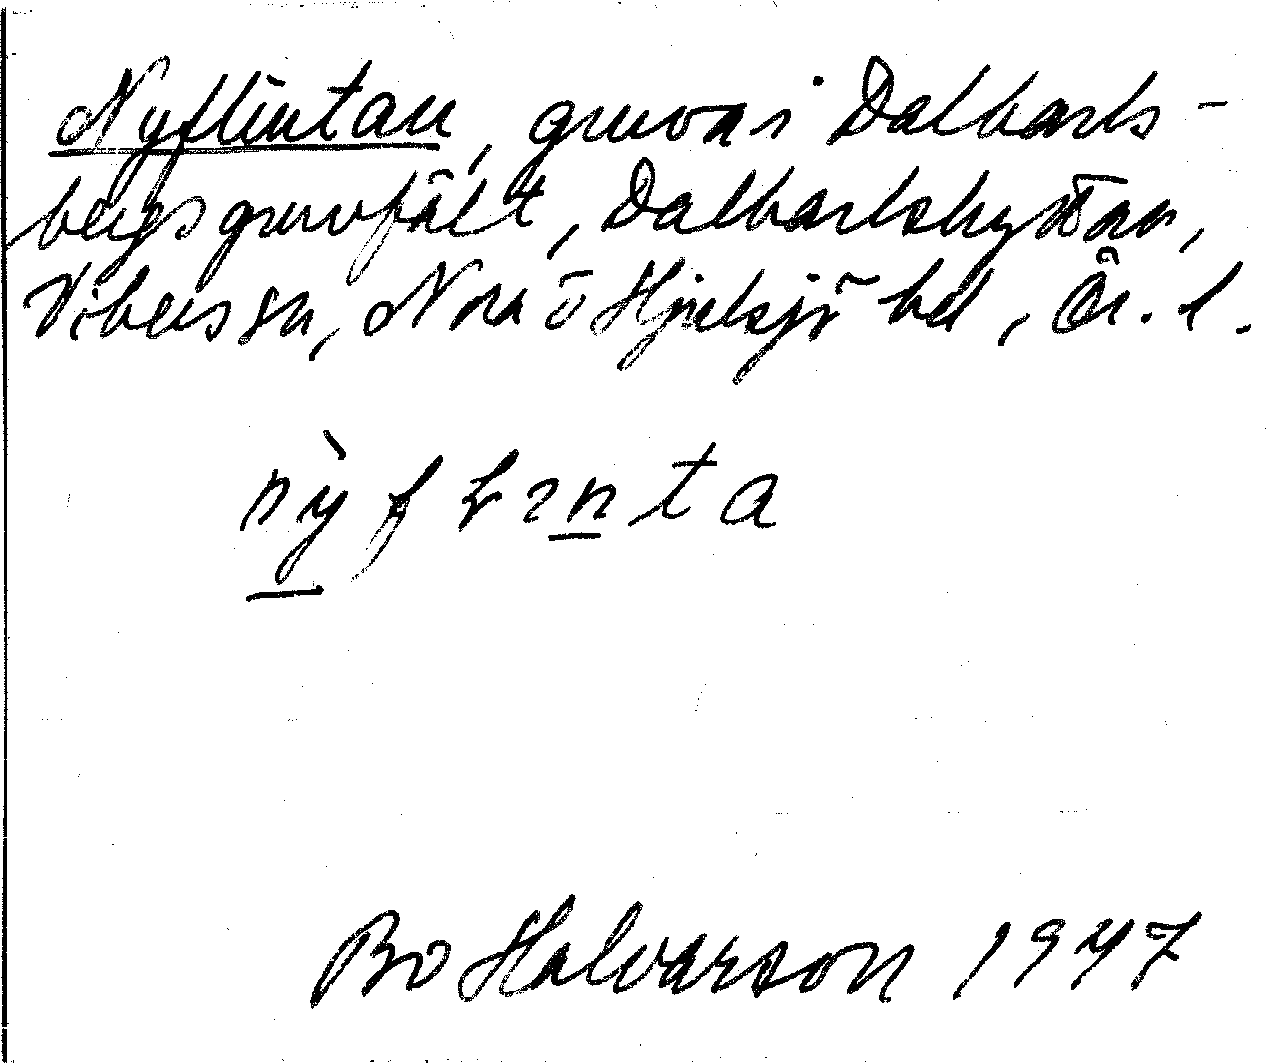 Nyflintan, gruva i Dalkarls-
bergs gruvfält, Dalkarlshyttan,
Vikers sn, Nora o Hjulsjö bd, Ör. l.
Bo Halvarson 1947